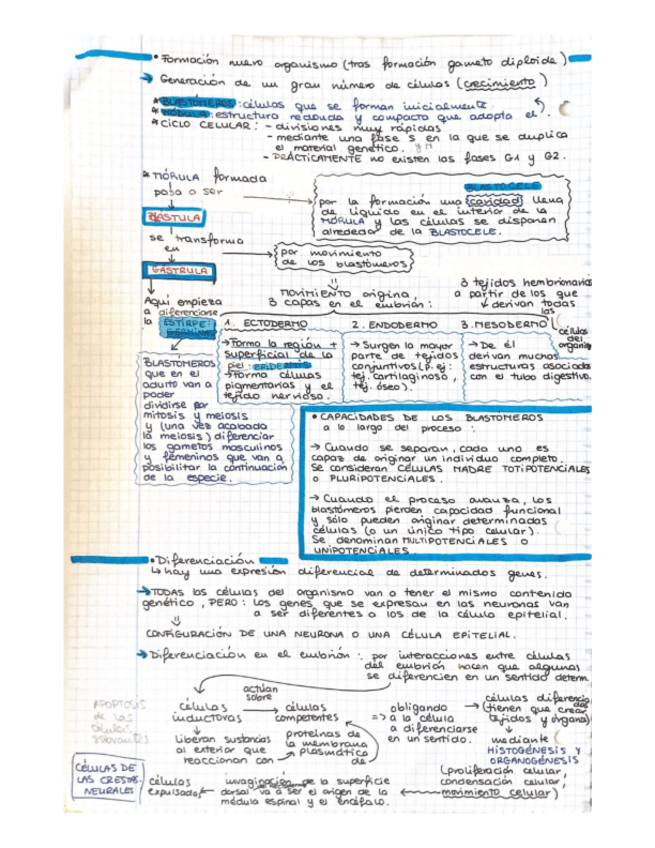 • Formación nuevo organismo (tras formación gameto diploide)
→ Generación de un gran número de células (crecimiento)
* BLASTÓMEROS: células que se forman inicialmente
* MÓRULA: estructura redonda y compacta que adopta el
* CICLO CELULAR: - divisiones muy rápidas
- mediante una fase S en la que se duplica
el material genético. y M
- PRÁCTICAMENTE no existen las fases G1 y G2.
* MÓRULA formada
pasa a ser
BLÁSTULA
se transforma
en
GÁSTRULA
BLASTOCELE
por la formación una cavidad llena
de líquido en el interior de la
MÓRULA y las células se disponen
alrededor de la BLASTOCELE.
por movimiento
de los blastómeros
MOVIMIENTO origina
3 capas en el embrión:
3 tejidos hembrionarios
a partir de los que
derivan todas
las
células
del
organis
Aquí empieza
a diferenciarse
la ESTIRPE
GERMINAL
BLASTÓMEROS
que en el
adulto van a
poder
dividirse por
mitosis y meiosis
y (una vez acabada
la meiosis) diferenciar
los gametos masculinos
y femeninos que van a
posibilitar la continuación
de la especie.
1. ECTODERMO
→ Forma la región +
superficial de la
piel: EPIDERMIS
→ Forma células
pigmentarias y el
tejido nervioso.
2. ENDODERMO
→ Surgen la mayor
parte de tejidos
conjuntivos (p. ej:
tej. cartilaginoso,
tej. óseo).
3. MESODERMO
→ De él
derivan muchas
estructuras asociada
con el tubo digestivo.
• CAPACIDADES DE LOS BLASTÓMEROS
a lo largo del proceso:
→ Cuando se separan, cada uno es
capaz de originar un individuo completo.
Se consideran CÉLULAS MADRE TOTIPOTENCIALES
o PLURIPOTENCIALES.
→ Cuando el proceso avanza, los
blastómeros pierden capacidad funcional
y sólo pueden originar determinadas
células (o un único tipo celular).
Se denominan MULTIPOTENCIALES O
UNIPOTENCIALES.
• Diferenciación
↳ hay una expresión diferencial de determinados genes.
→ TODAS las células del organismo van a tener el mismo contenido
genético, PERO: los genes que se expresan en las neuronas van
a ser diferentes a los de la célula epitelial.
CONFIGURACIÓN DE UNA NEURONA O UNA CÉLULA EPITELIAL.
→ Diferenciación en el embrión: por interacciones entre células
del embrión hacen que algunas
se diferencien en un sentido determ.
células
inductoras
actúan
sobre
células
competentes
=> obligando
a la célula
a diferenciarse
en un sentido.
células diferencia
das
(tienen que crear
tejidos y órganos)
mediante
HISTOGÉNESIS Y
ORGANOGÉNESIS
(proliferación celular,
condensación celular,
movimiento celular)
Liberan sustancias
al exterior que
reaccionan con
proteínas de
la membrana
plasmática
de
APOPTOSIS
de las
células
CÉLULAS DE
LAS CRESTAS
NEURALES
células
expulsadas
invaginación de la superficie
dorsal va a ser el origen de la
médula espinal y el encéfalo.